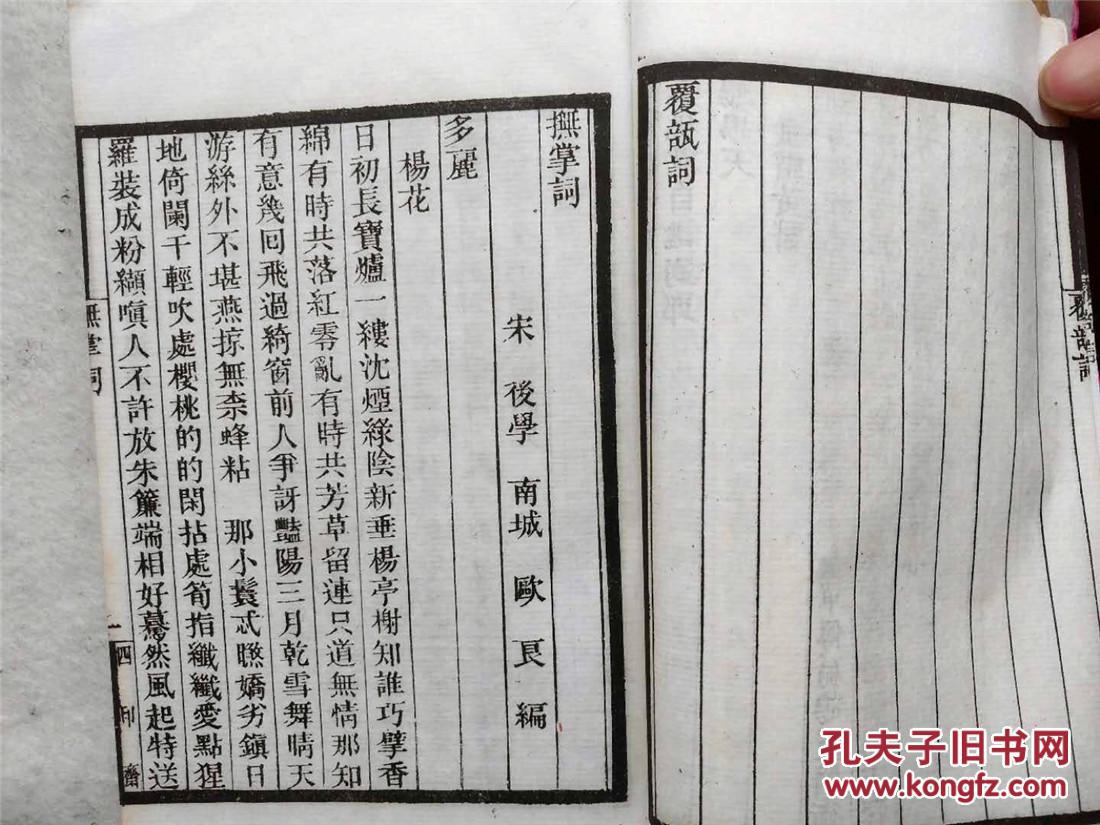 覆瓿詞
覆瓿詞
撫掌詞
宋 後學 南城 歐良編
多麗
楊花
日初長寶爐一縷沈煙綠陰新垂楊亭榭知誰巧擘香
綿有時共落紅零亂有時共芳草留連只道無情那知
有意幾回飛過綺窗前人爭訝豔陽三月乾雪舞晴天
游絲外不堪燕掠無柰蜂粘 那小鬟忒瞭嬌劣鎭日
地倚闌干輕吹處櫻桃的的閑拈處筍指纖纖愛點猩
羅裝成粉纈嗔人不許放朱簾端相好驀然風起特送
撫掌詞
一
四印齋
孔夫子旧书网
www.kongfz.com